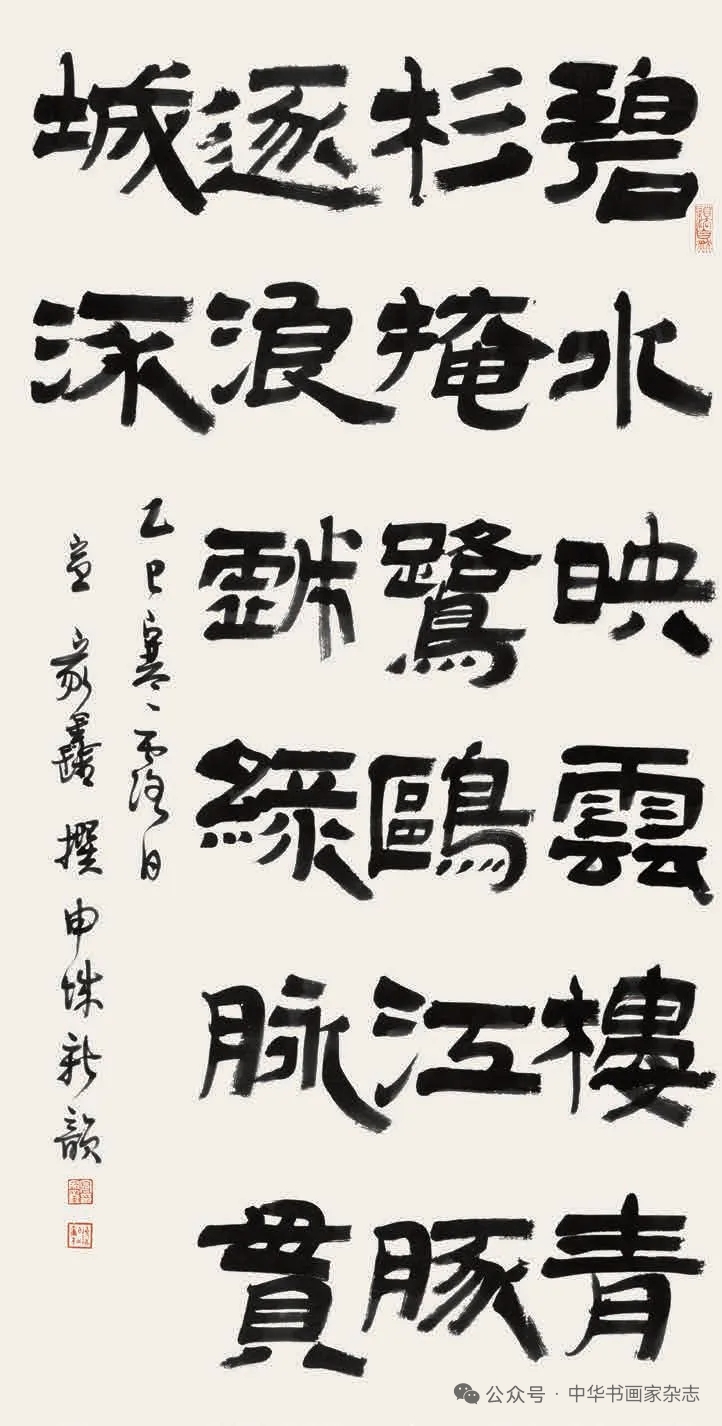 碧水映雲樓青
杉掩鷺鷗江豚
逐浪戲綠脉貫
城深
乙巳寒露後日
宣家鑫撰申城新韻
公众号 · 中华书画家杂志